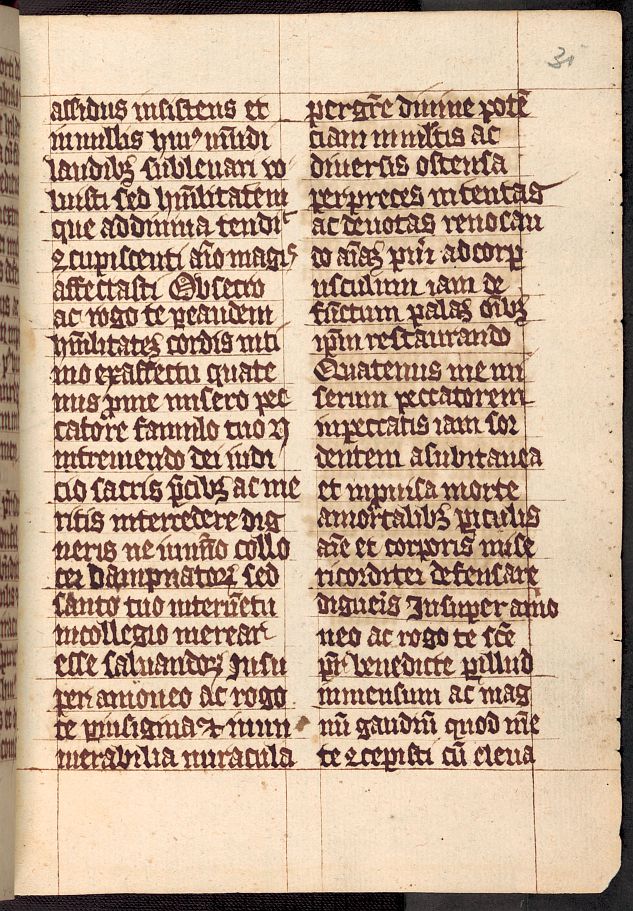 31
assidus insistens et
in nullis huiꝰ mūdi
laudibꝫ subleuari vo
luisti sed hūilitatem
que ad diuina tendit
ꝯcupiscenti aīo magis
affectasti Obsecro
ac rogo te per eandem
hūilitateꝫ cordis inti
mo ex affectu quate
nus pro me misero pec
catore famulo tuo ī
in tremendo dei iudi
cio sacris p̄cibꝫ ac me
ritis intercedere dig
neris ne in im̄o collo
cer dampnatoꝝ sed
sancto tuo interuētu
in collegio merear
esse saluandoꝝ Insu
per amoneo ac rogo
te per insignia et innu
merabilia miracula
per grē diuine potē
ciam in ml̄tis ac
diuersis ostensa
per preces intentas
ac deuotas reuocan
do aīaꝫ pueri ad corp
usculum iam de
fūctum palaꝫ oībꝫ
ip̄m restaurando
Quatenus me mi
serum peccatorem
in peccatis iam sor
dentem a subitanea
et inprouisa morte
a mortalibꝫ periculis
aīe et corporis mise
ricorditer defensare
digneris Insuper amo
neo ac rogo te scē
pater benedicte per illud
inmensum ac mag
nū gaudiū quod in me
te ꝯcepisti cū eleua